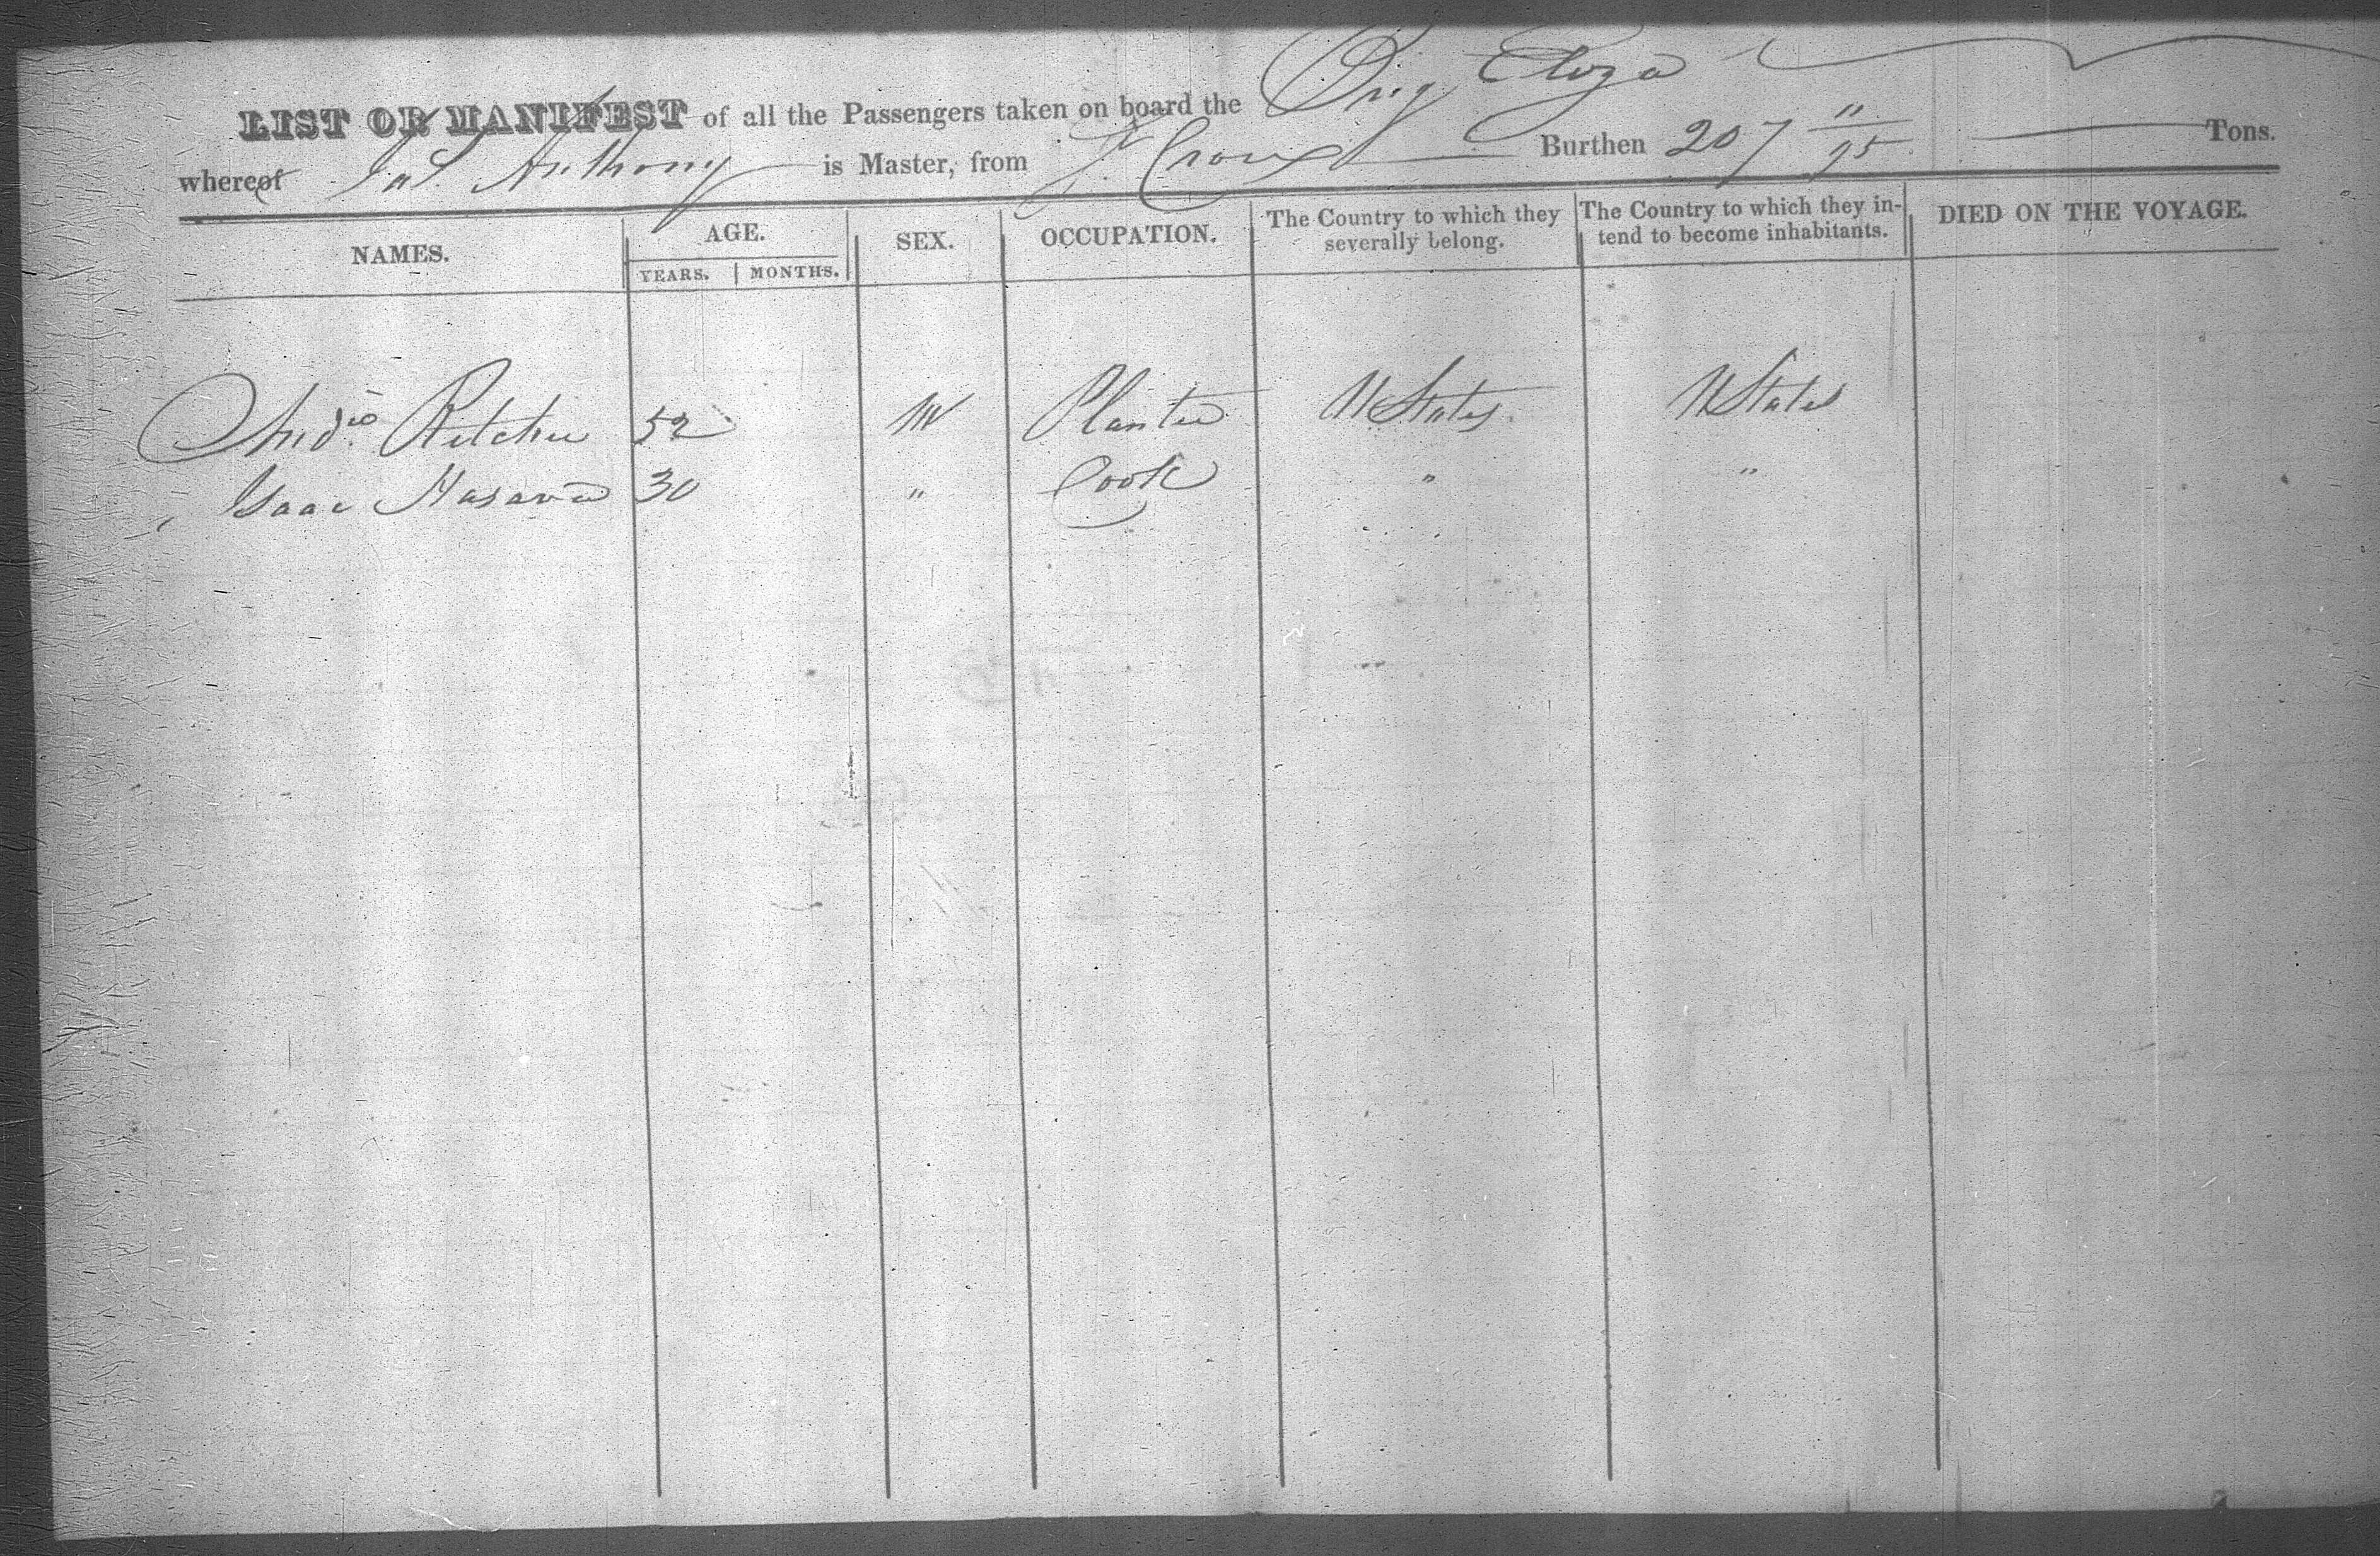 LIST OR MANIFEST of all the Passengers taken on board the Brig Eliza
whereof Jas. Anthony is Master, from St Croix Burthen 207 11/95 Tons.
NAMES. AGE. SEX. OCCUPATION. The Country to which they severally belong. The Country to which they intend to become inhabitants. DIED ON THE VOYAGE.
YEARS. MONTHS.
Ritchie 52 M Planter U States U States
Isaac 30 " Cook " "